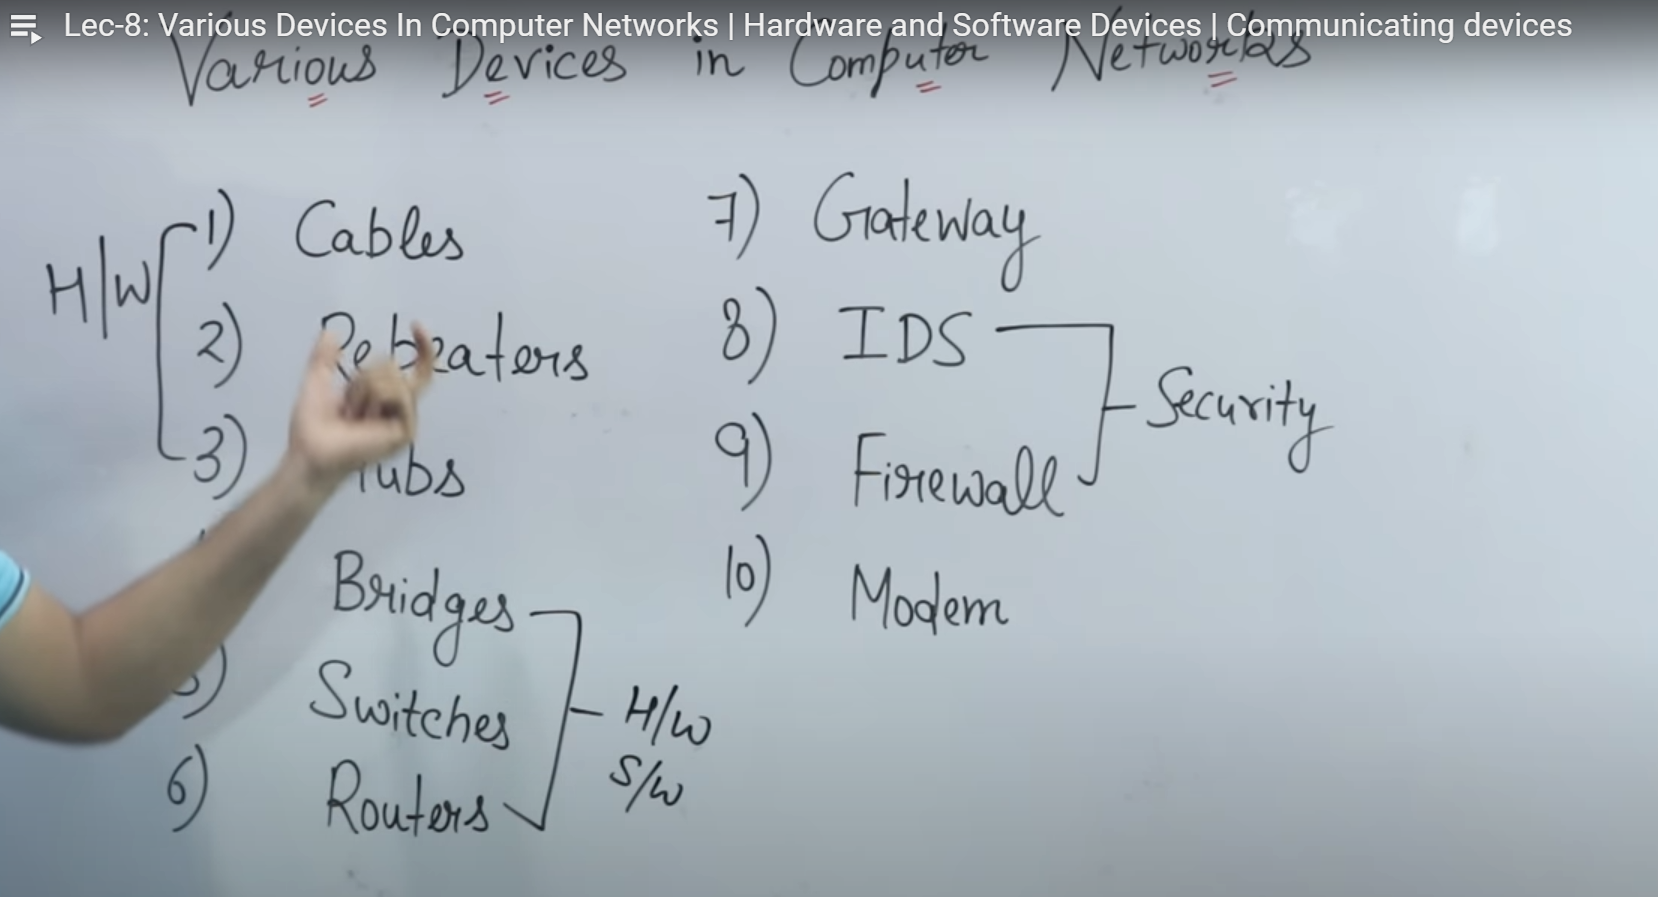 Lec-8: Various Devices In Computer Networks | Hardware and Software Devices | Communicating devices
Various Devices in Computer Networks
H/W
1) Cables
2) Repeaters
3) Hubs
Bridges
5) Switches
6) Routers
H/W
S/W
7) Gateway
8) IDS
9) Firewall
Security
10) Modem